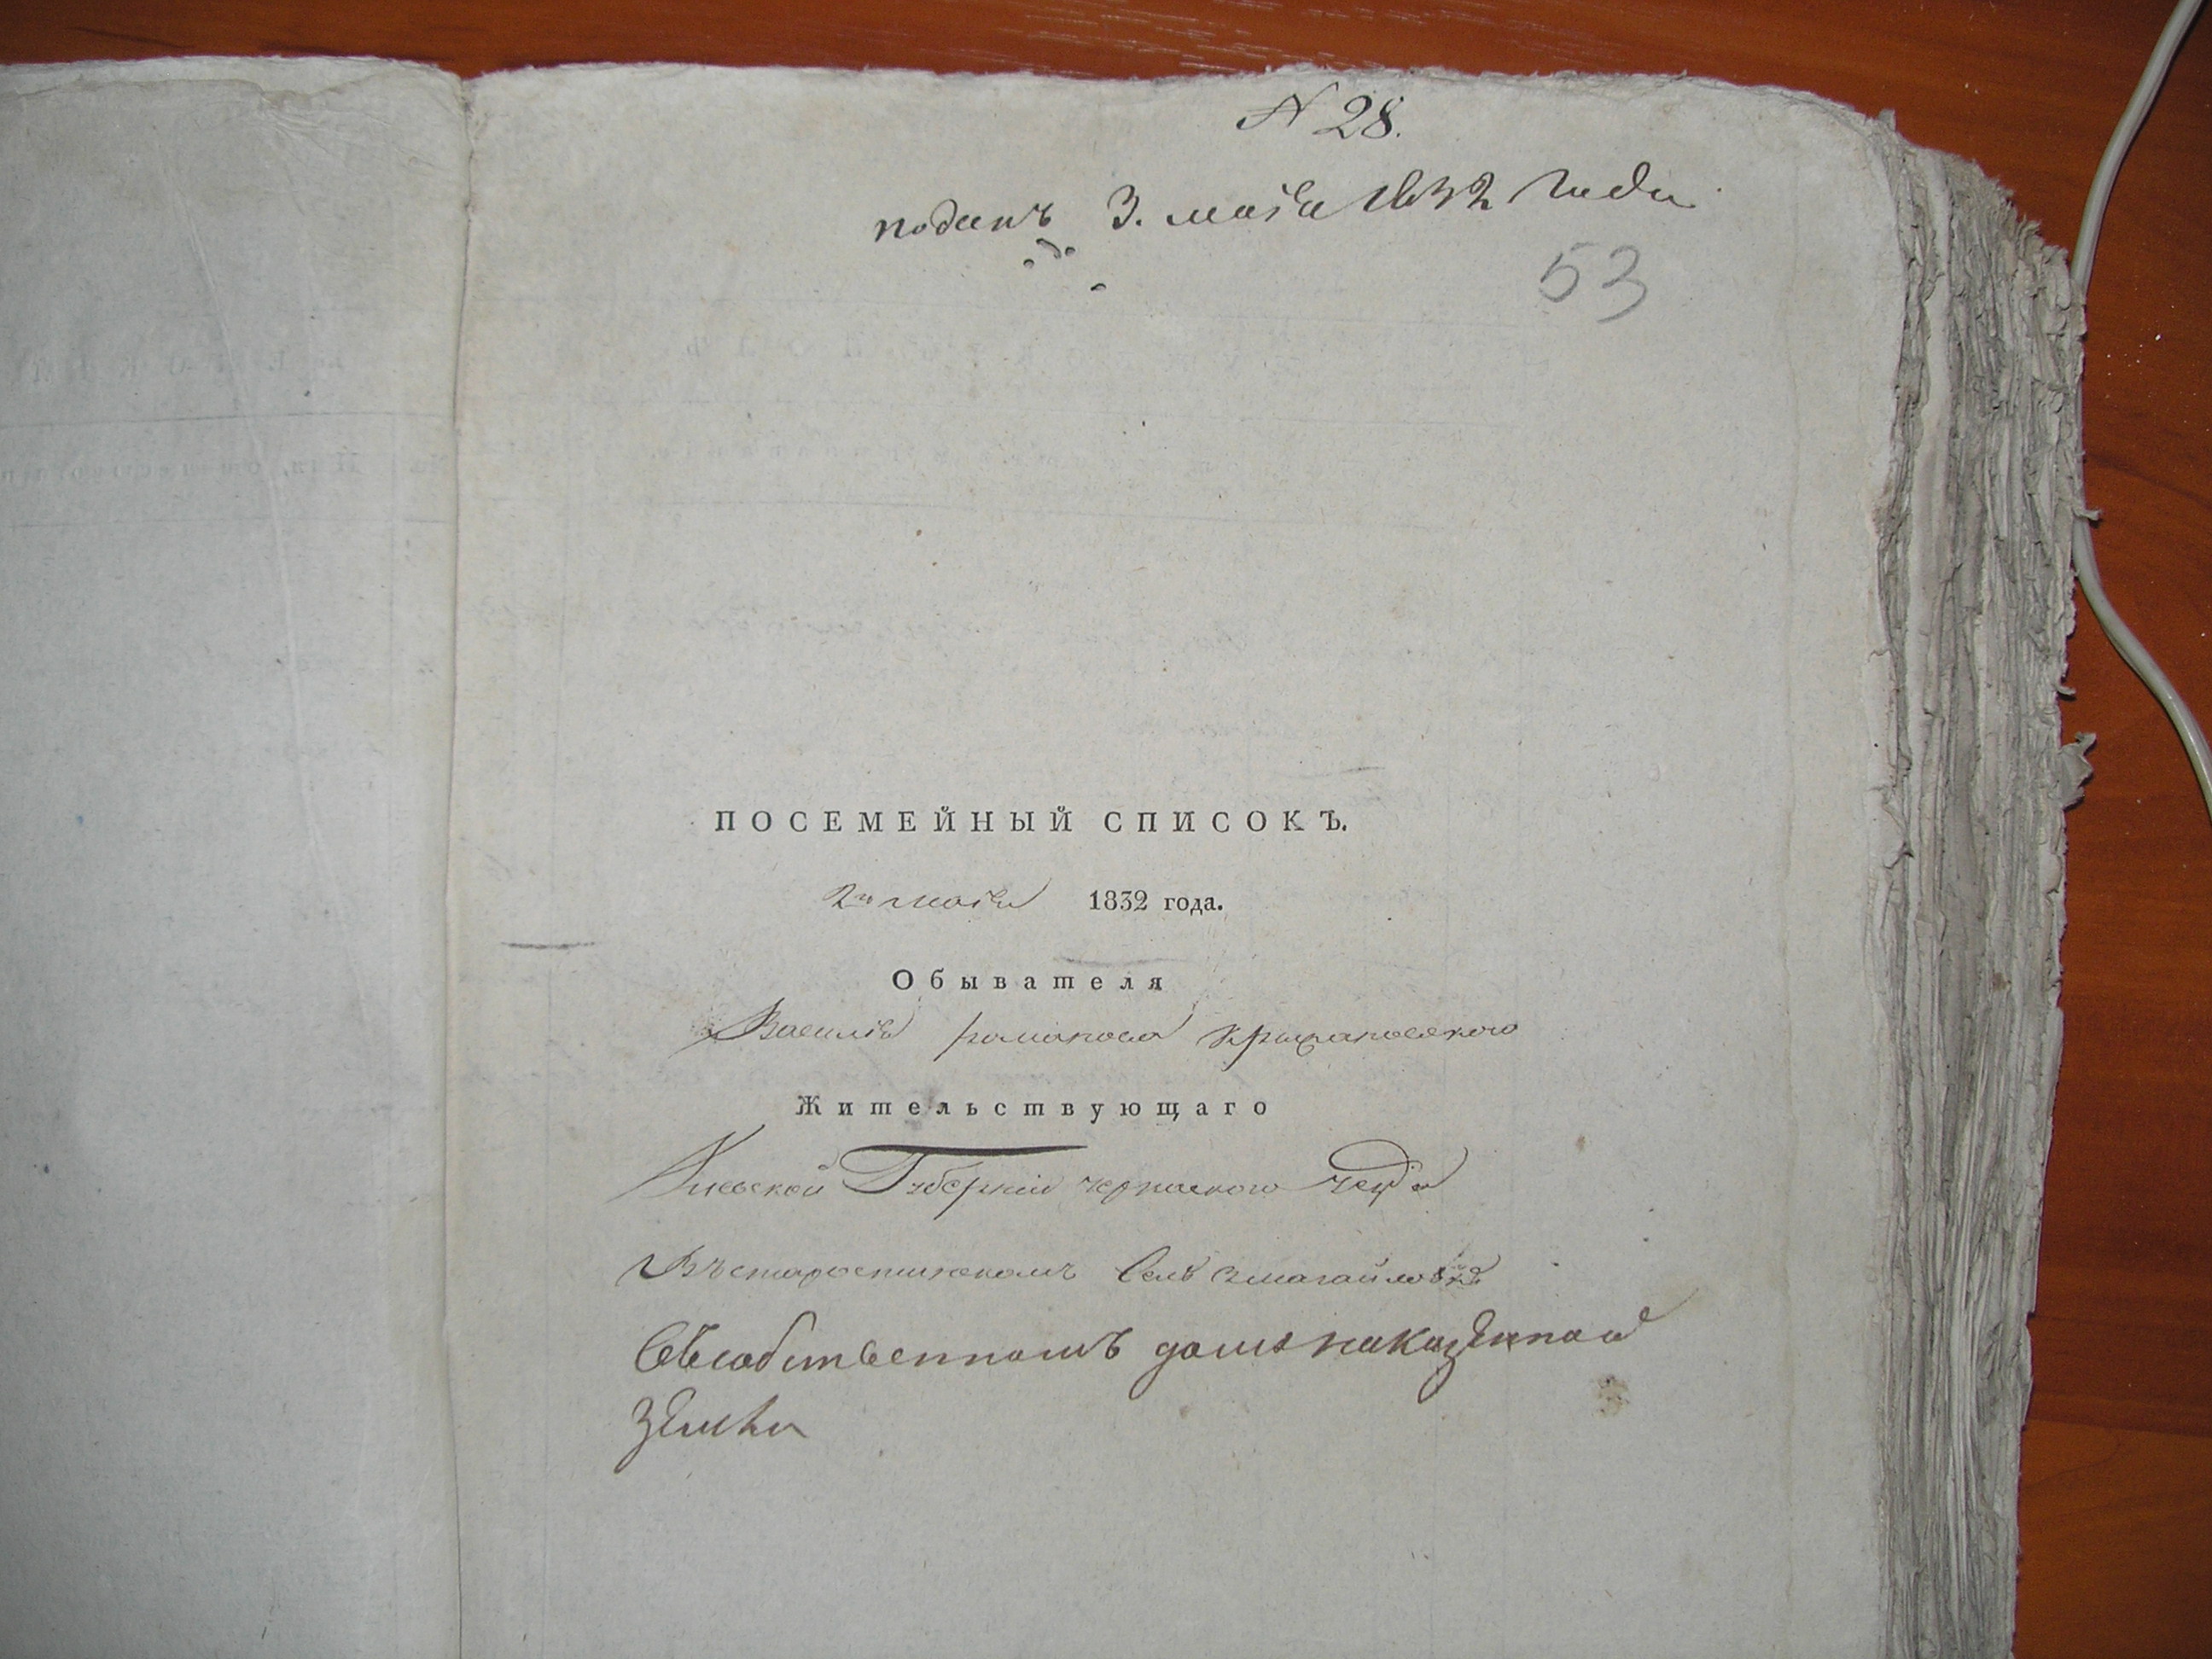 N 28.
поданъ 3. маія 1832 Года
53
ПОСЕМЕЙНЫЙ СПИСОКЪ.
2го маія 1832 года.
Обывателя
Василія романова
Жительствующаго
Кіевской Губерніи черкаского уезда
Въ старостинскомъ Селѣ змагайловкѣ
Въ собственномъ домѣ на казенной
земли